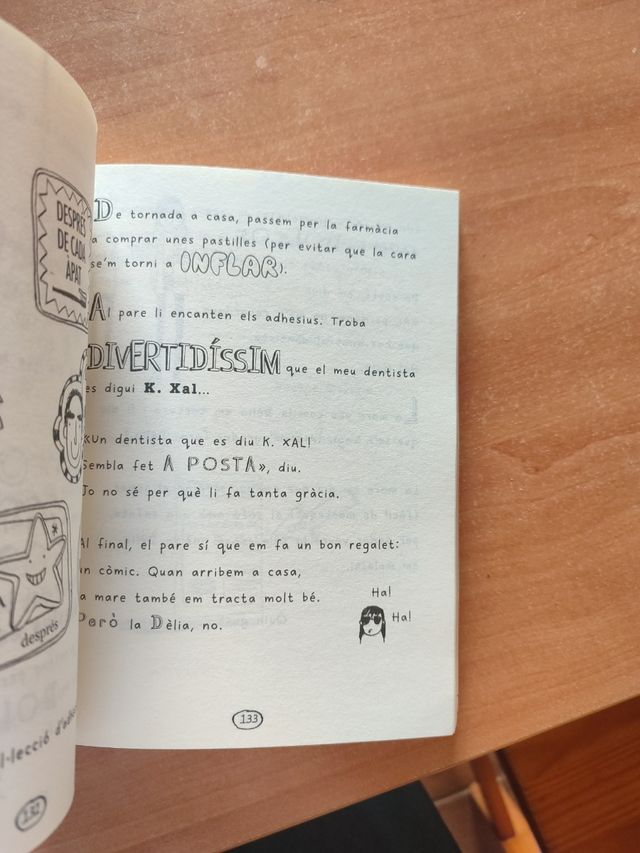 DESPRÉS
DE CADA
ÀPAT
després
l·lecció d'adhe
132
De tornada a casa, passem per la farmàcia
a comprar unes pastilles (per evitar que la cara
se'm torni a INFLAR).
Al pare li encanten els adhesius. Troba
DIVERTIDÍSSIM que el meu dentista
es digui K. Xal...
«Un dentista que es diu K. XAL!
Sembla fet A POSTA», diu.
Jo no sé per què li fa tanta gràcia.
Al final, el pare sí que em fa un bon regalet:
un còmic. Quan arribem a casa,
la mare també em tracta molt bé.
Però la Dèlia, no.
Ha!
Ha!
133